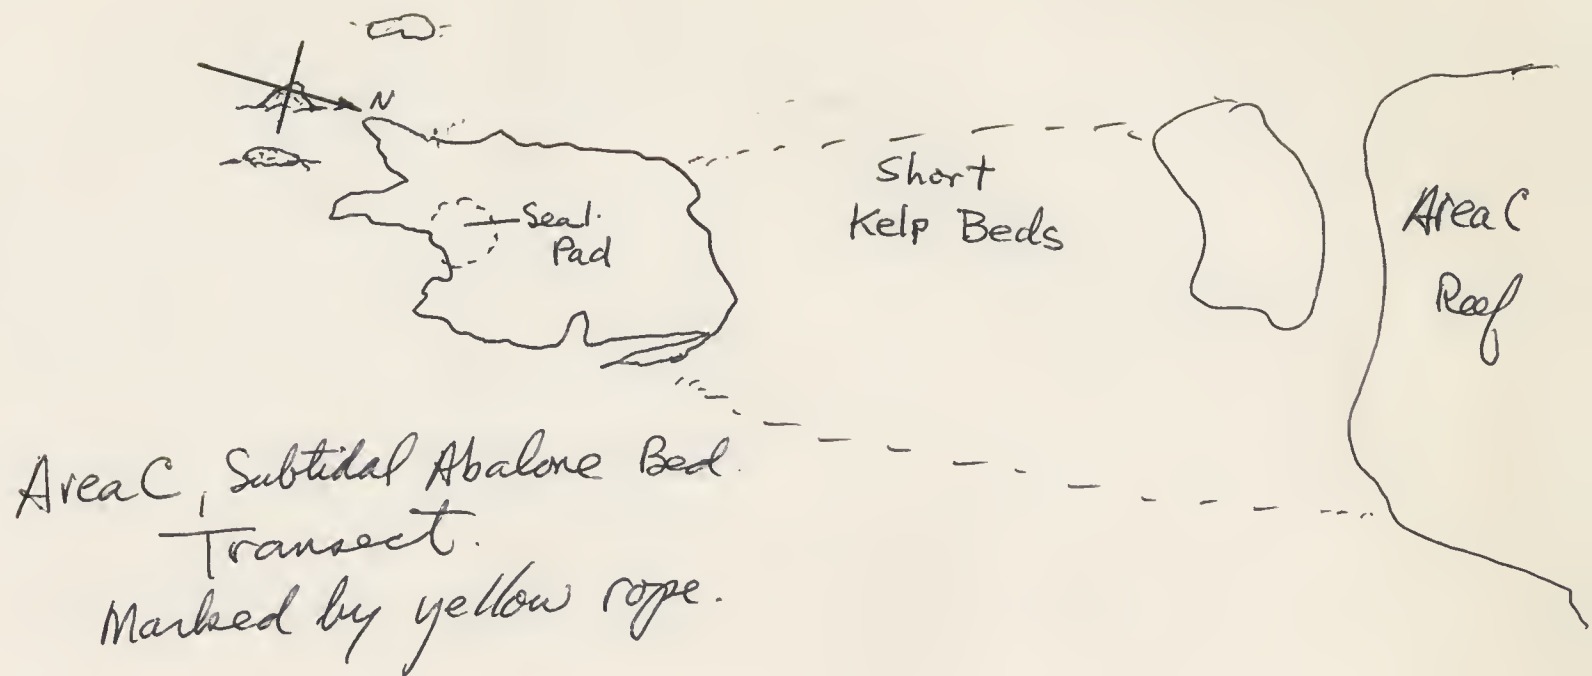 N
Seal
Pad
Short
Kelp Beds
Area C
Reef
Area C, Subtidal Abalone Bed
Transect.
Marked by yellow rope.